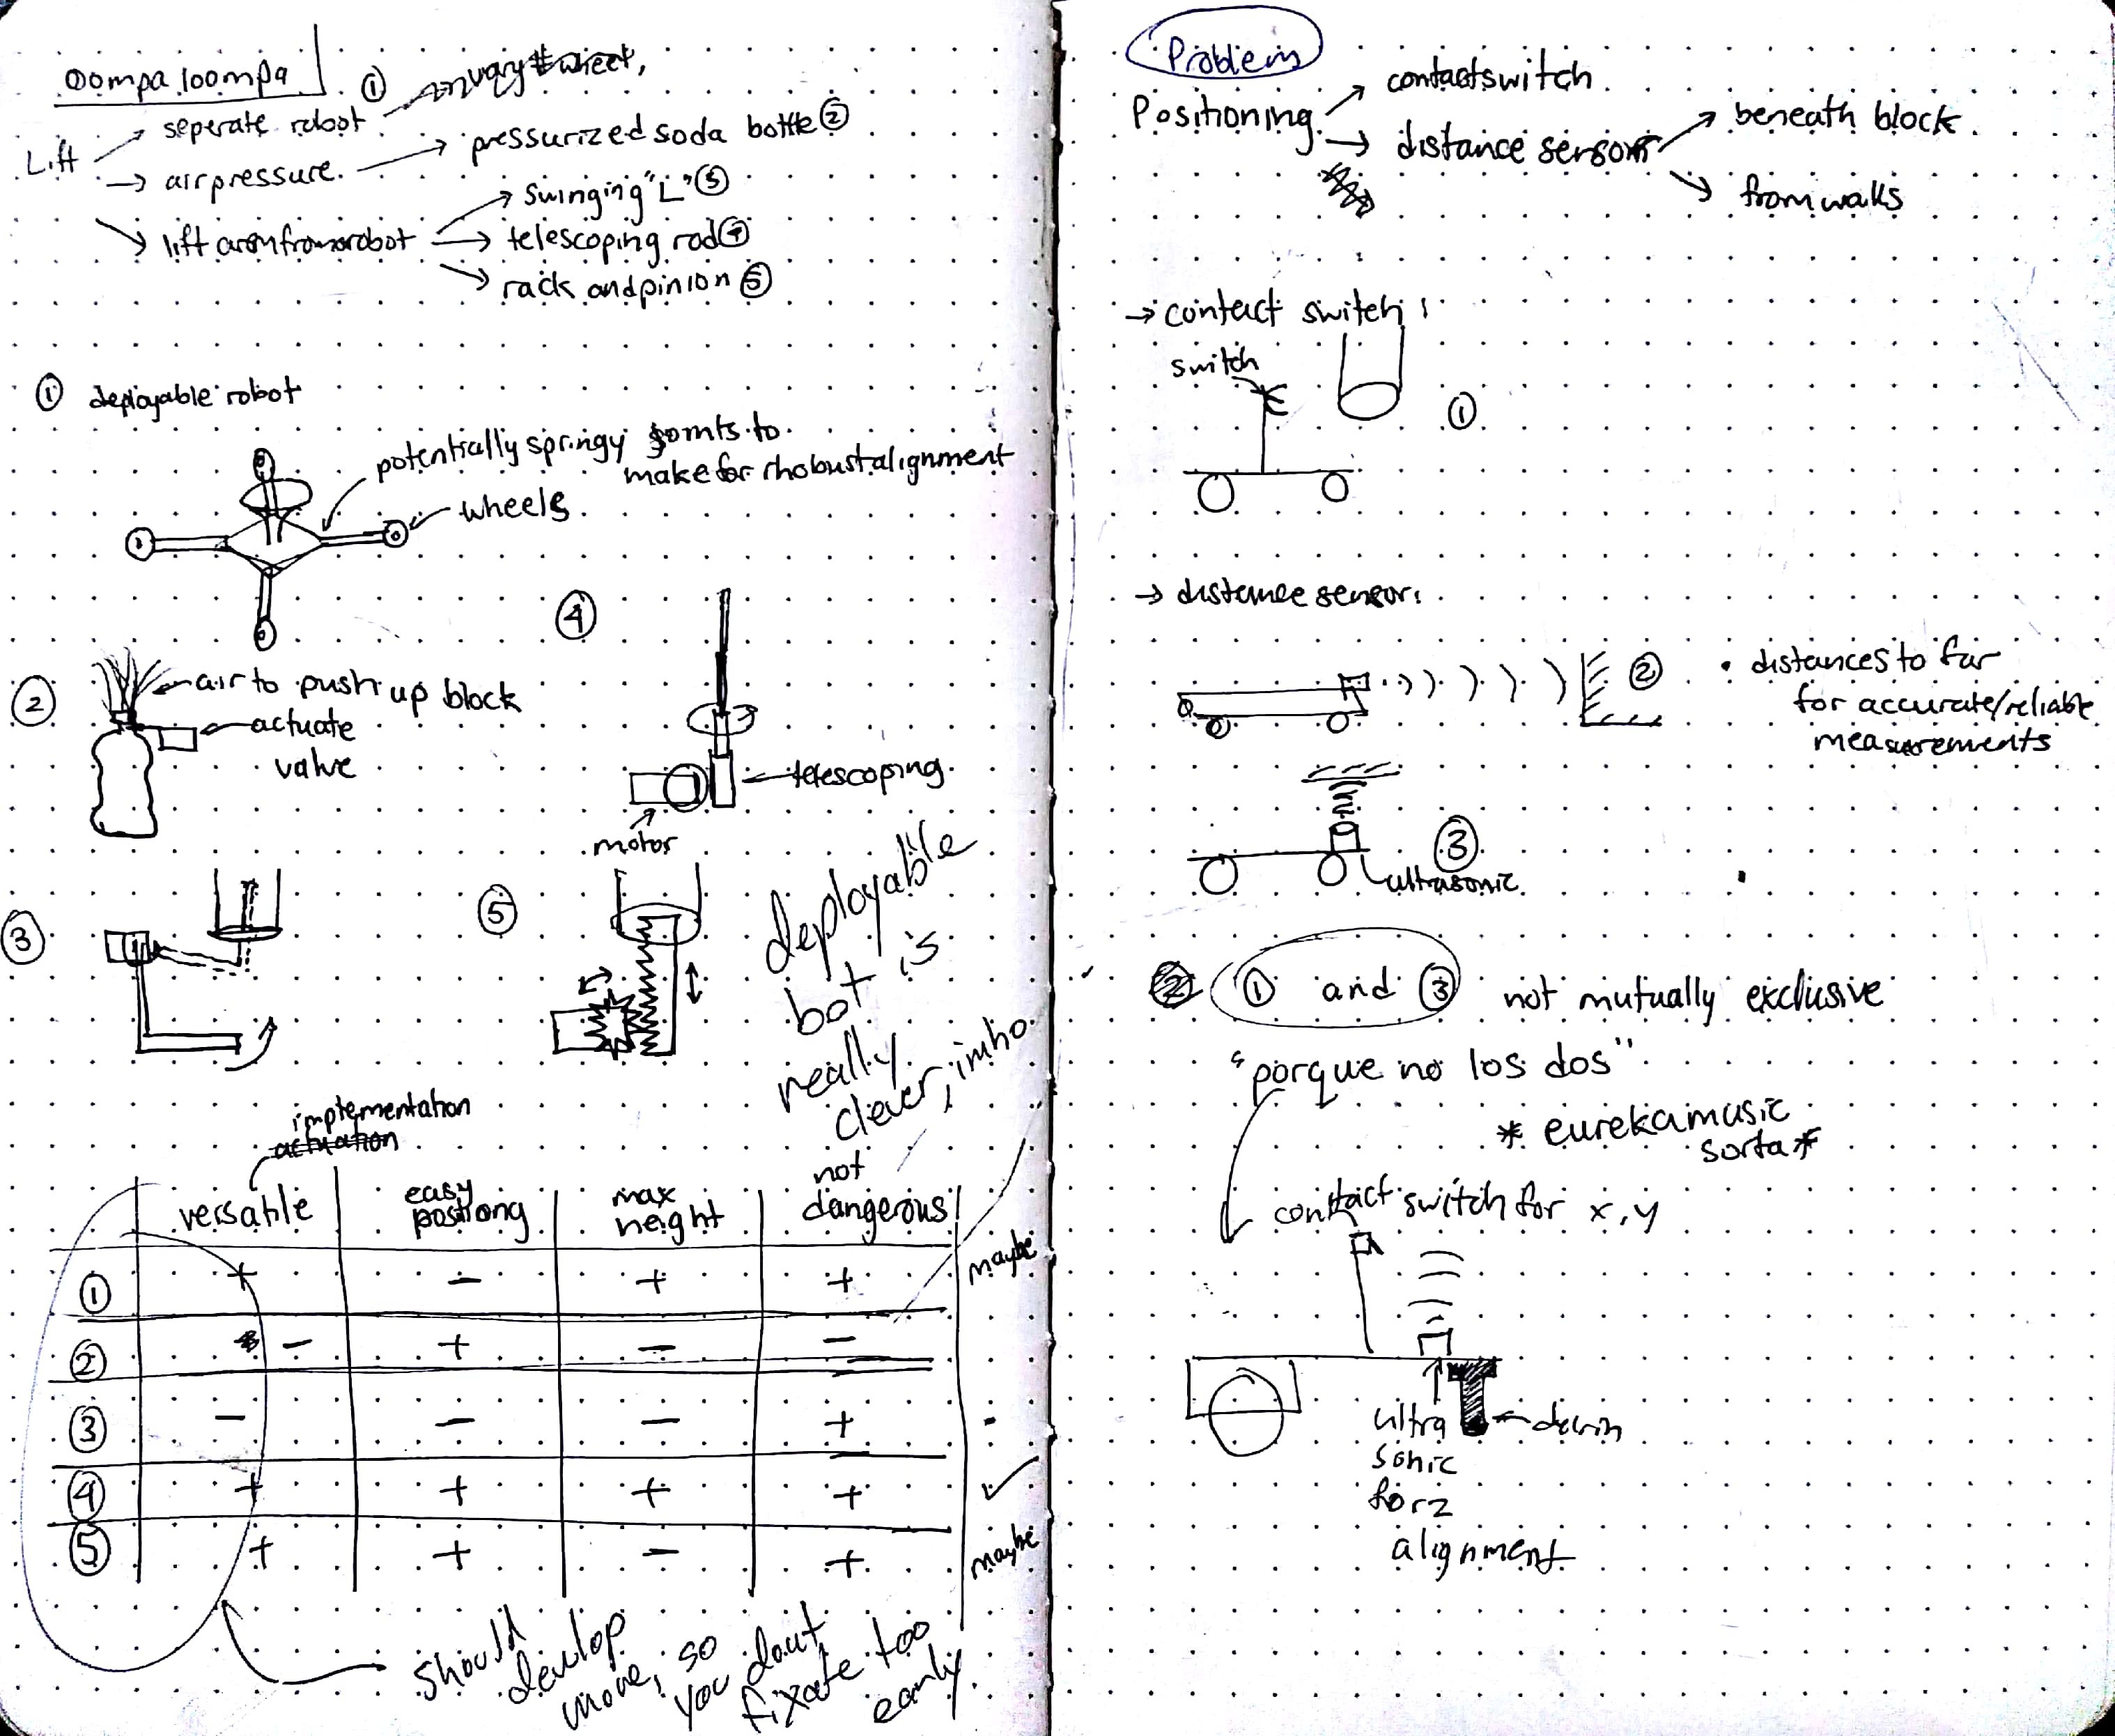 oompa loompa
Lift
seperate robot ①
vary # wheel,
air pressure
pressurized soda bottle ②
lift arm from robot
swinging "L" ③
telescoping rod ④
rack and pinion ⑤
① deployable robot
potentially springy joints to
make for rhobust alignment
wheels
②
air to push up block
actuate
valve
④
telescoping
motor
③
⑤
deployable
bot is
really
clever, imho
implementation
actuation
versatile easy postiong max height not dangerous!
① + - + + maybe
② - + - -
③ - - - + -
④ + + + + ✓
⑤ + + - + maybe
should
devlop
more, so
you dont
fixate too
early
Problem
Positioning
contact switch
distance sensor
beneath block
from walls
→ contact switch:
switch
①
→ distance sensor:
②
• distances to far
for accurate/reliable
measurements
③
ultrasonic
① and ③ not mutually exclusive
"porque no los dos"
* eureka music
sorta *
contact switch for x, y
ultra
sonic
for z
alignment